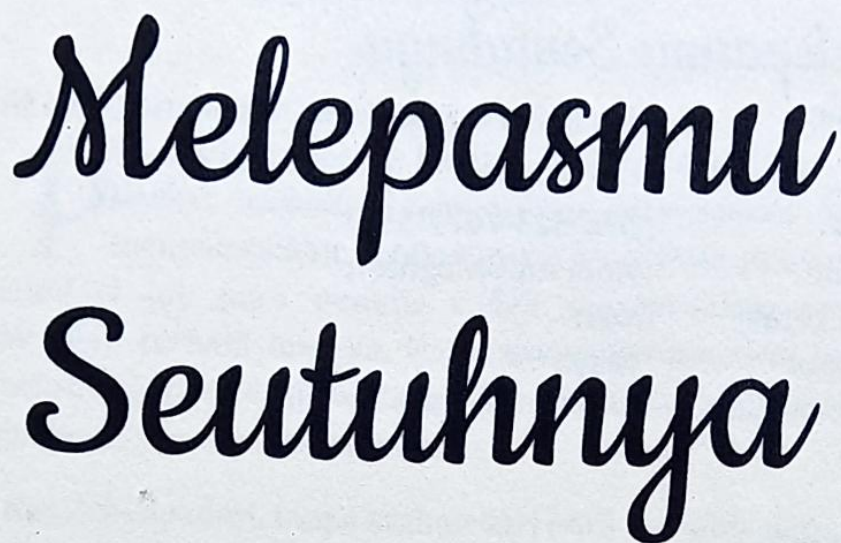 Melepasmu
Seutuhnya